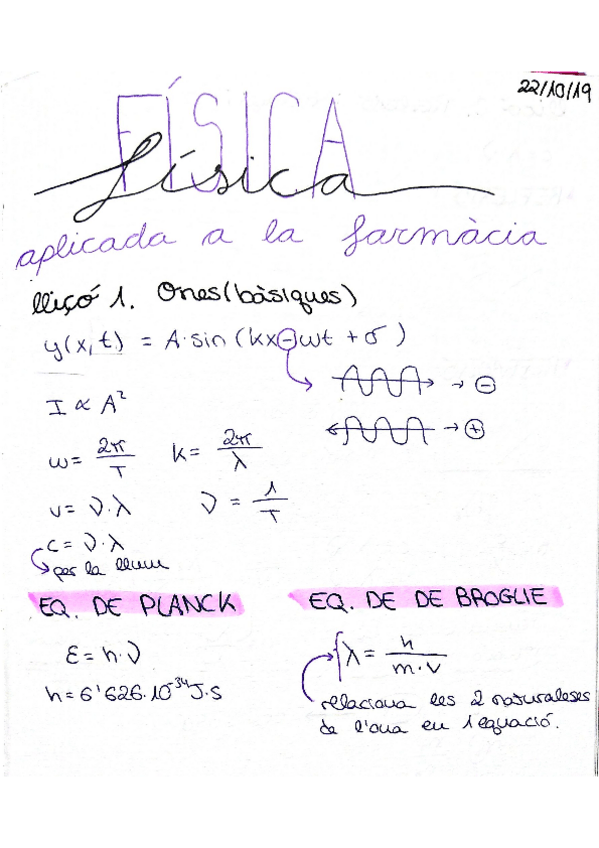 22/10/19
FÍSICA
física
aplicada a la farmàcia
lliçó 1. Ones (bàsiques)
y(x,t) = A·sin (kx-ωt + σ)
→ ⊖
I ∝ A²
→ ⊕
ω = 2π/T k = 2π/λ
v = ν·λ ν = 1/T
c = ν·λ
per la llum
EQ. DE PLANCK
EQ. DE DE BROGLIE
E = h·ν
λ = h/m·v
h = 6'626·10⁻³⁴ J·s
relaciona les 2 naturaleses
de l'ona en 1 equació.